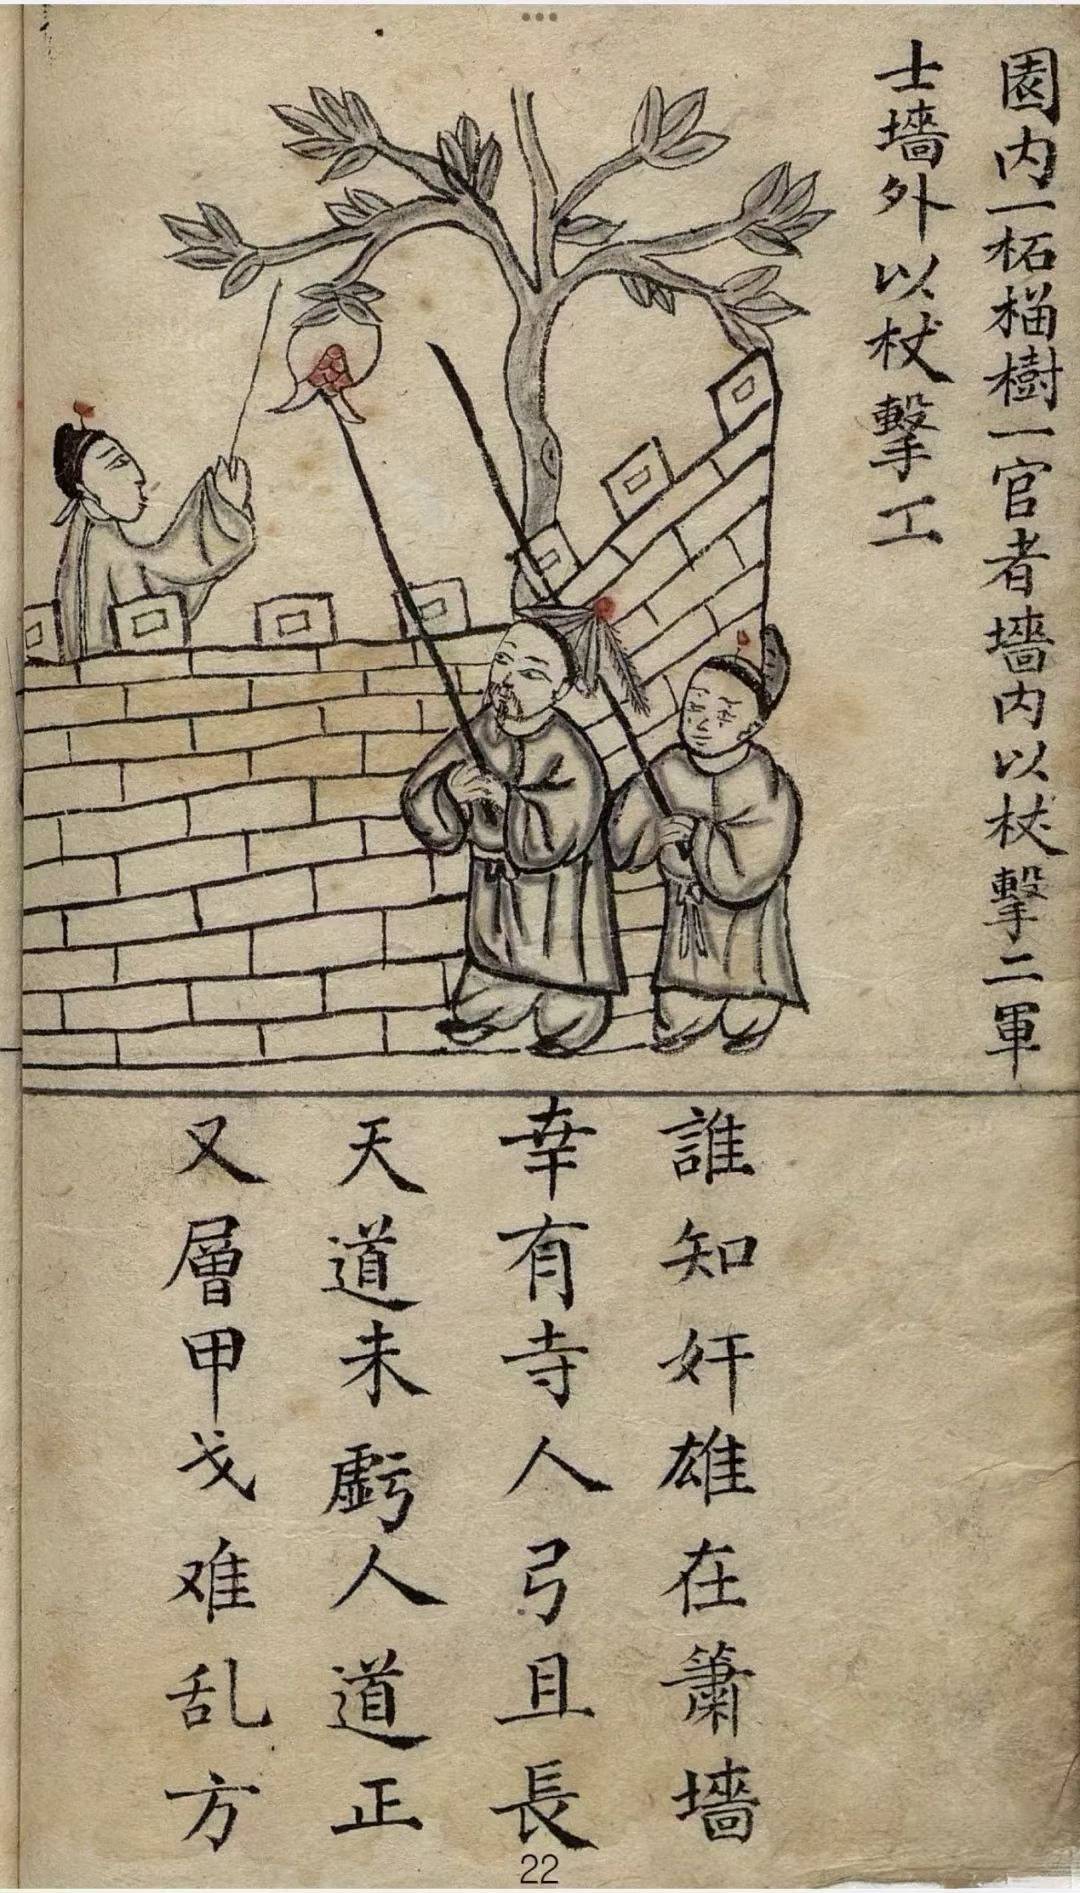 園内一柘榴樹一官者墻内以杖擊二軍
士墻外以杖擊工
誰知奸雄在簫墻
幸有寺人弓且長
天道未虧人道正
又層甲戈难乱方
22